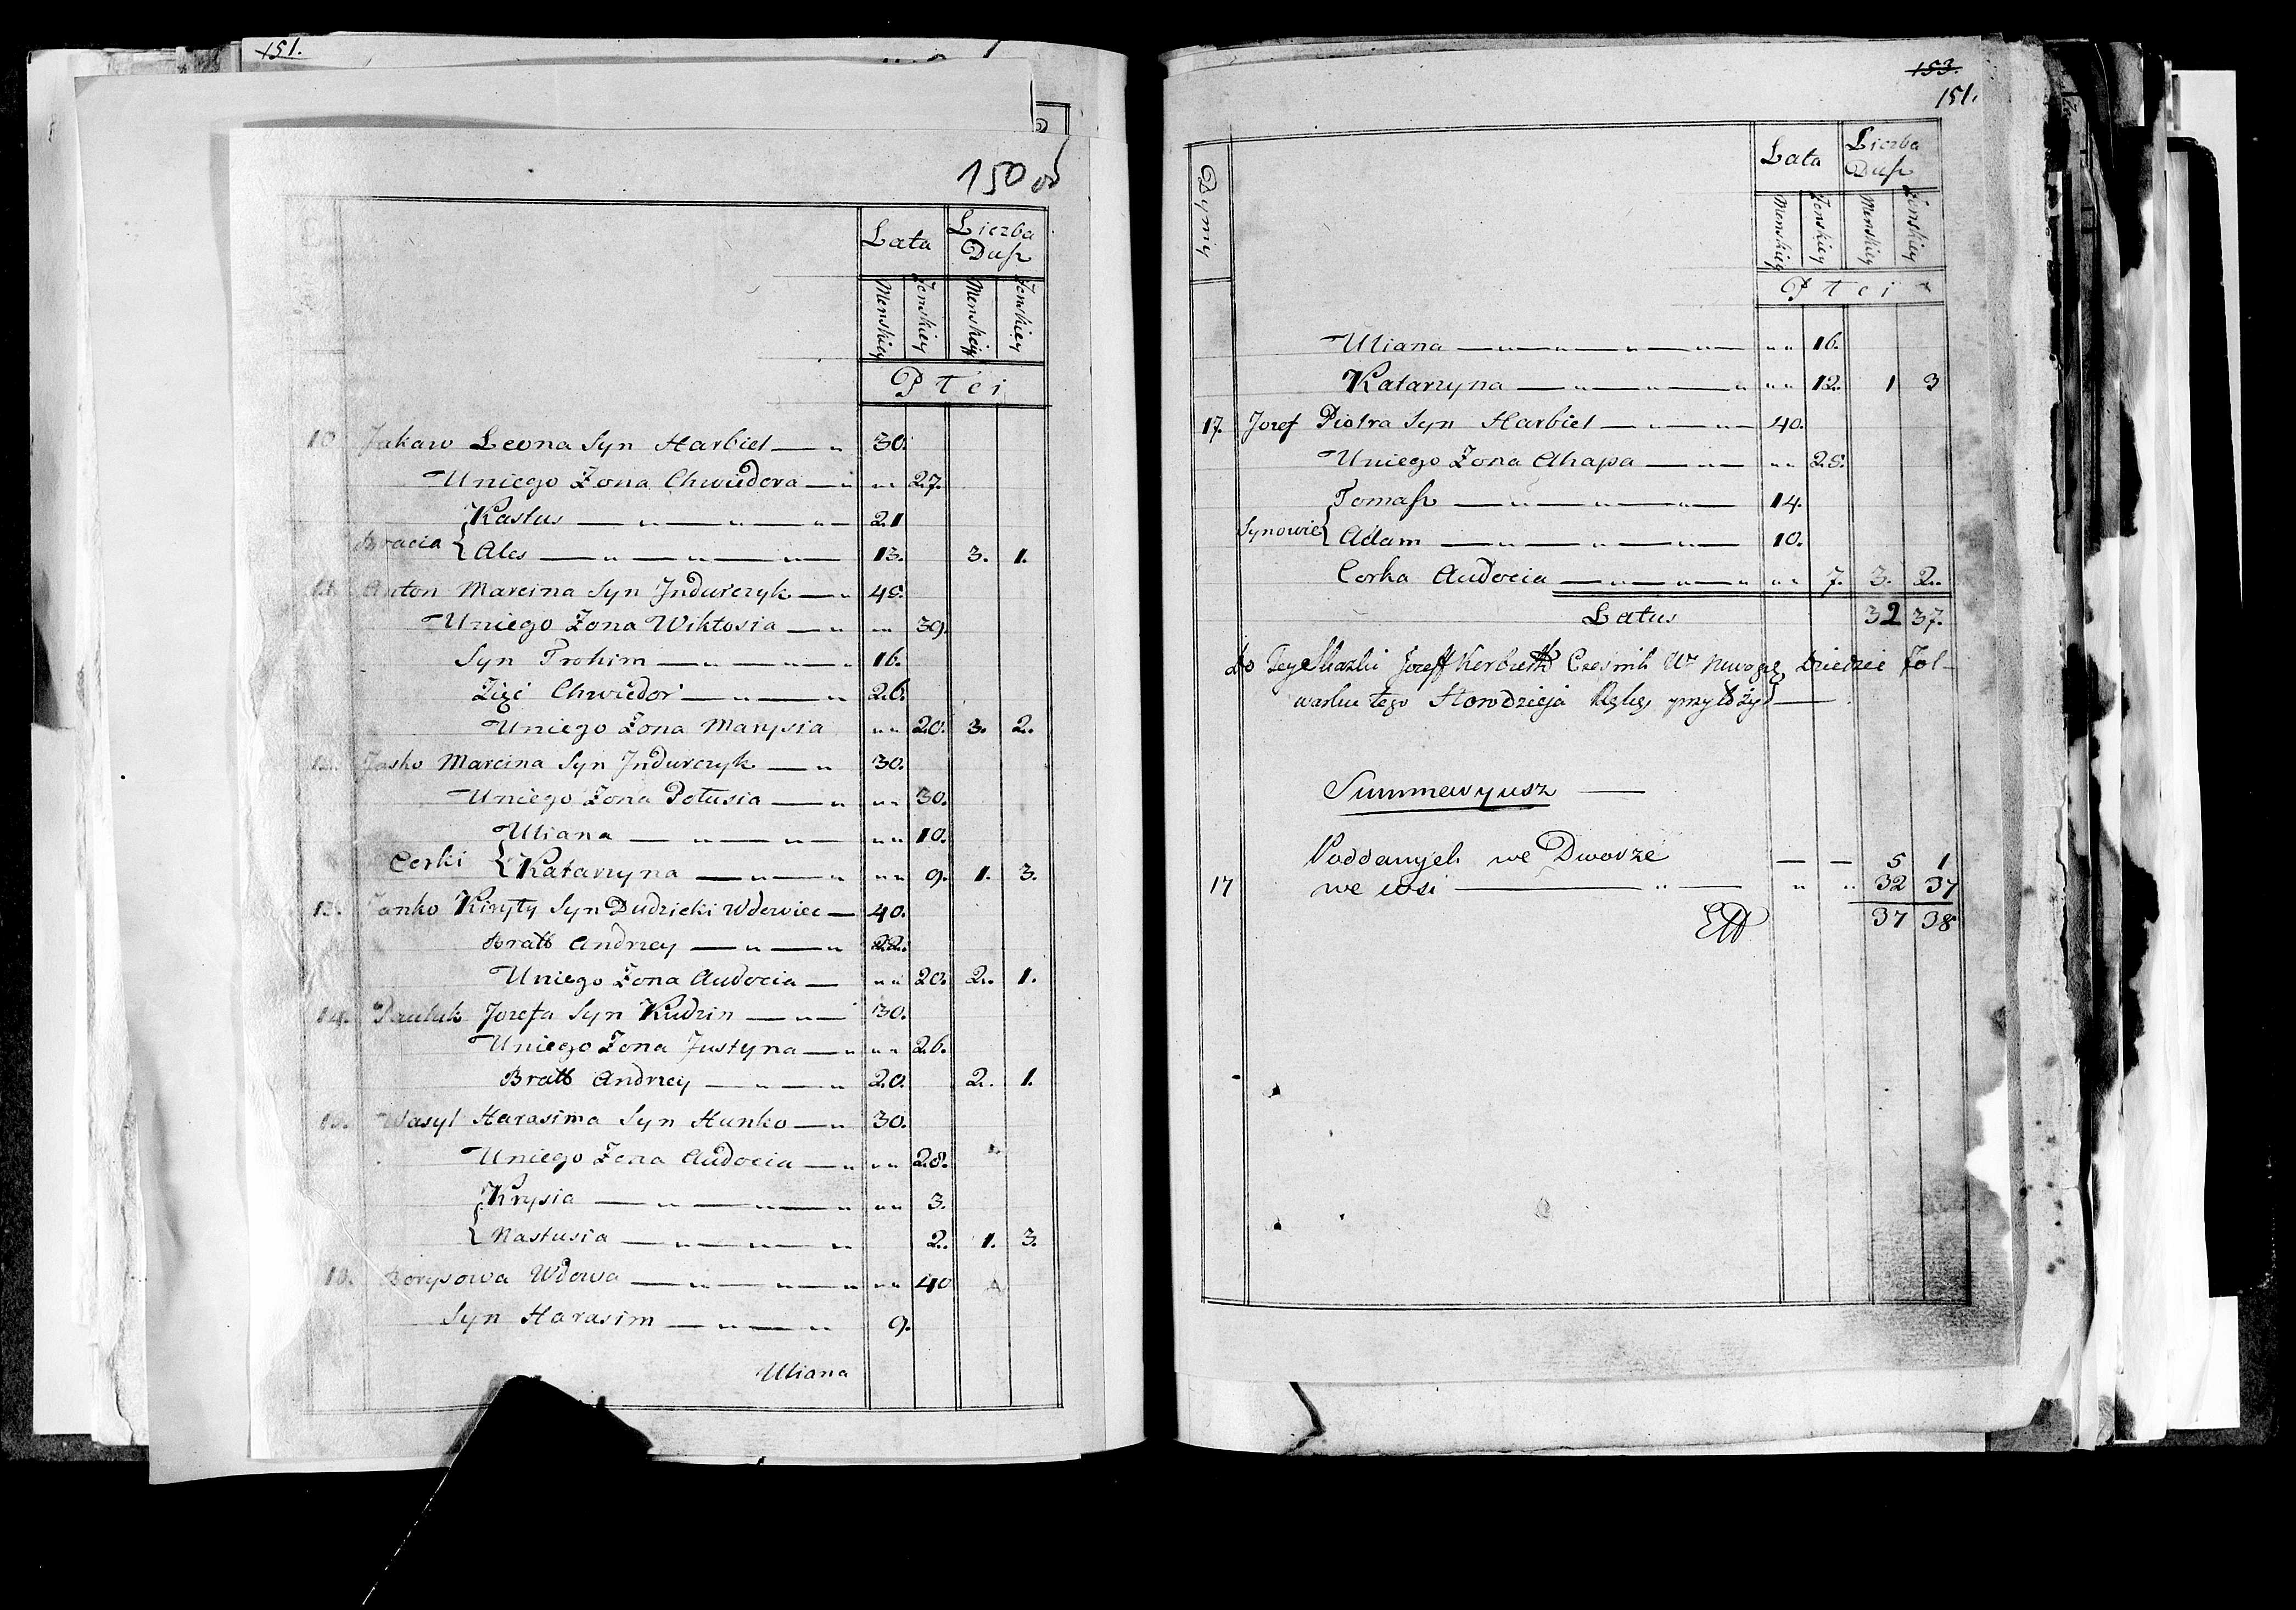 151.
150 об
Lata Liczba Dusz
Męnskiey Żenskiey Męnskiey Żenskiey
Płci
10 Jakaw Leona Syn Harbiel — „ 30.
Uniego Żona Chwiedora — „ „ „ 27.
Kastus — „ — „ — „ 21
Bracia { Ales — „ — „ — „ — 13. 3. 1.
11. Anton Marcina Syn Indurczyk — „ 48.
Uniego Żona Wiktosia — „ „ „ 39.
Syn Trohim — „ — „ 16.
Zięć Chwiedor — „ — „ 26.
Uniego Żona Marysia „ „ 20. 3. 2.
12. Jasko Marcina Syn Indurczyk — „ 30.
Uniego Żona Połusia — „ „ „ 30.
Uliana — „ — „ „ „ 10.
Corki { Katarzyna — „ — „ „ „ 9. 1. 3.
13. Janko Kiryły Syn Dudzicki Wdowiec — 40.
Bratt Andrzey — „ — „ 22.
Uniego Żona Audocia — „ „ 20. 2. 1.
14. Pauluk Jozefa Syn Kudzin — „ — 30.
Uniego Żona Justyna — „ „ „ 26.
Bratt Andrzey — „ — „ 20. 2. 1.
15. Wasyl Harasima Syn Hunko — „ 30.
Uniego Żona Audocia — „ „ „ 28.
{ Krysia — „ — „ — „ „ „ 3.
Nastusia — „ — „ — „ 2. 1. 3.
16. Borysowa Wdowa — „ — „ — „ „ „ 40
Syn Harasim — „ — „ 9.
Uliana
153.
151.
Dymy Lata Liczba Dusz
Męnskiey Żenskiey Męnskiey Żenskiey
Płci
Uliana — „ — „ — „ — „ — „ „ 16.
Katarzyna — „ — „ — „ „ „ 12. 1 3
17. Jozef Piotra Syn Harbiel — „ — „ — 40.
Uniego Żona Ahapa — „ — „ „ 28.
Tomasz — „ — „ — „ — 14.
Synowie { Adam — „ — „ — „ — 10.
Corka Audocia — „ — „ — „ „ „ 7. 3. 2.
Latus 32 37.
do Tey Skazki Jozeff Dziedzic Fol-
warku tego Horodzieja Rękę przyłożył —
Summaryusz —
Poddanych we Dworze — — 5 1
17 we wsi — „ — „ „ 32 37
37 38